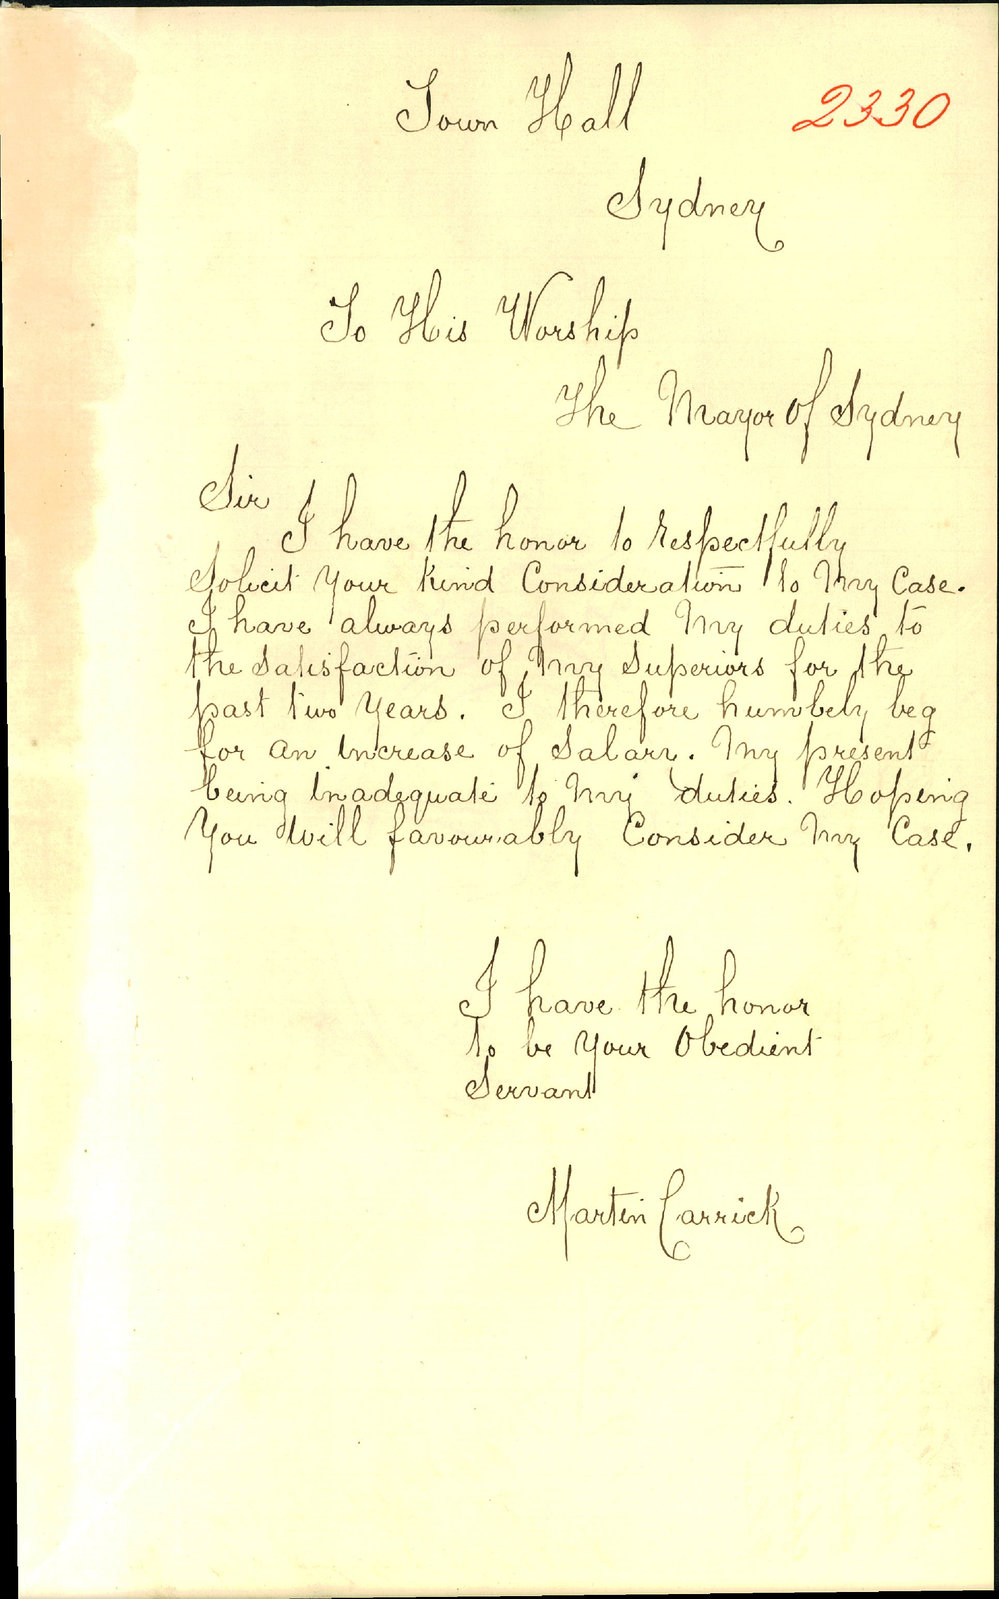 Town Hall 2330
Sydney
To His Worship
The Mayor Of Sydney
Sir
I have the honor to respectfully
Solicit Your kind Consideration to My Case.
I have always performed My duties to
the Satisfaction of My Superiors for the
past two Years. I therefore humbely beg
for an increase of Salary. My present
being inadequate to My duties. Hoping
You Will favourably Consider My Case.
I have the honor
to be Your Obedient
Servant
Martin Carrick